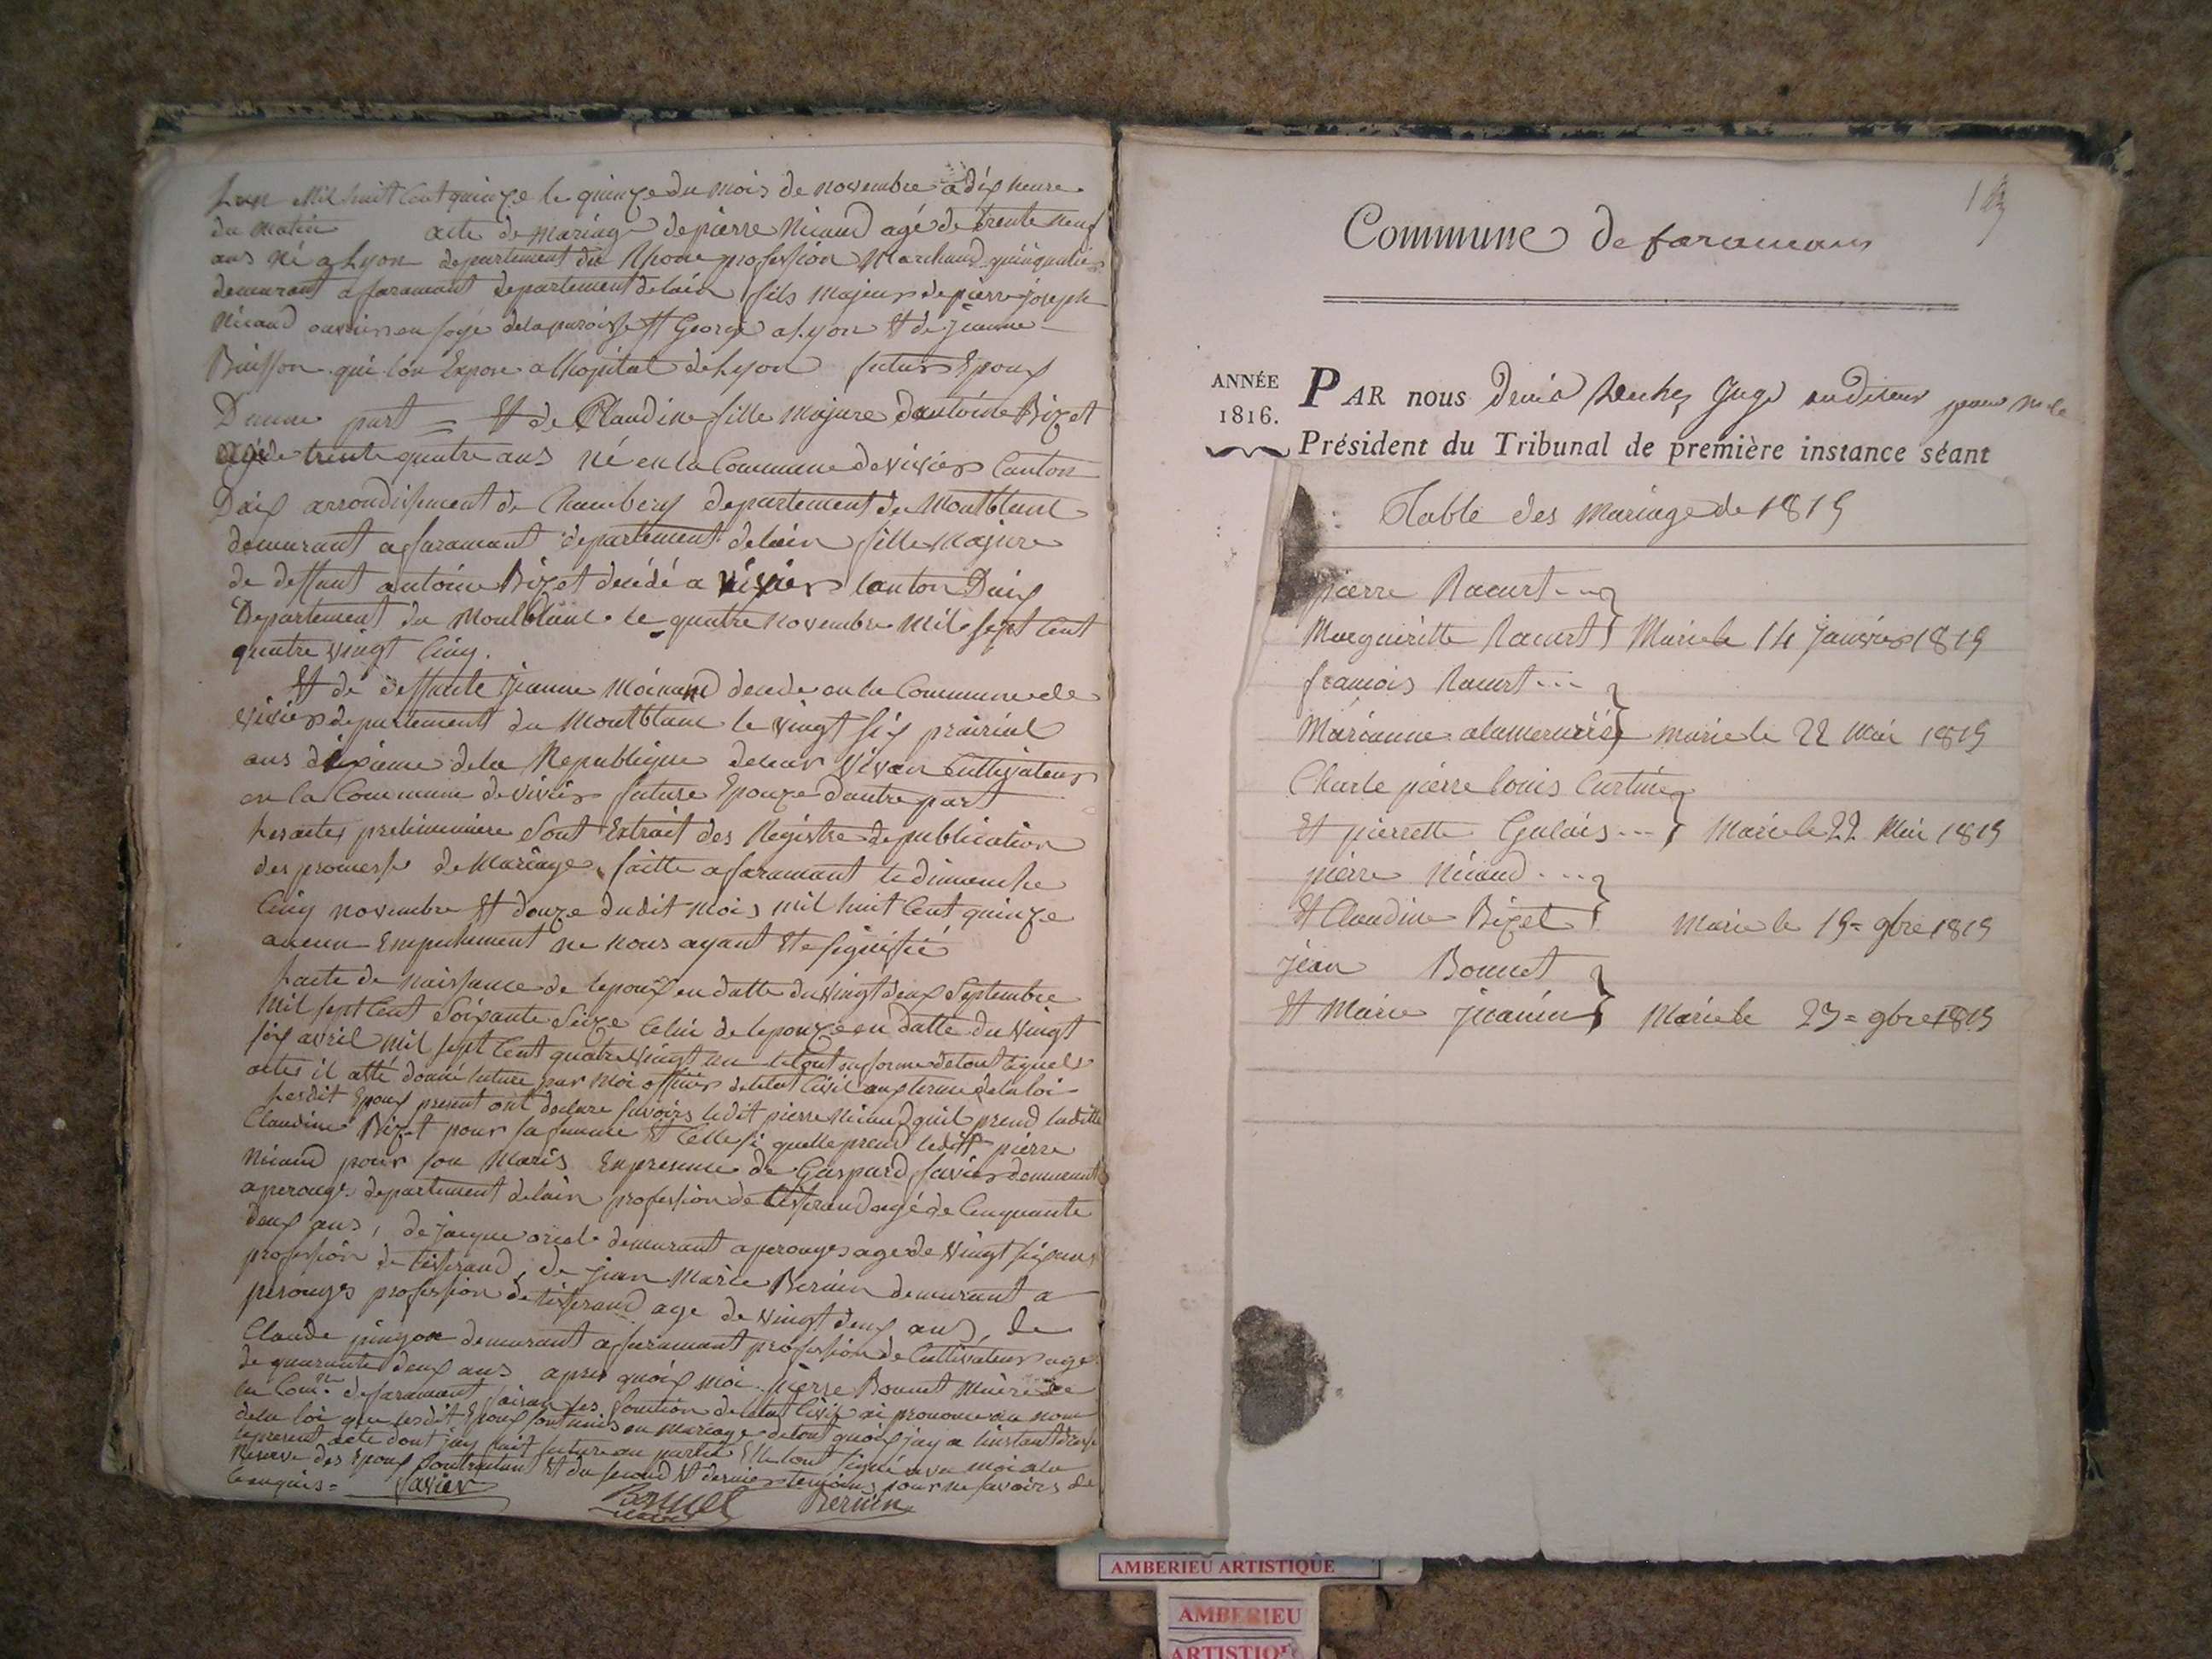 Lan Mil huit Cent quinze le quinze du mois de novembre a dix heure
du matin acte de mariage de pierre Nicaud agé de trente neuf
ans né a Lyon departement du Rhone profession Marchand quinqualier
demeurant a faramant departement de lain fils majeur de pierre joseph
Nicaud ouvrier en soye de la paroisse St George a Lyon Et de jeanne
Buisson qui lon Expose a lhopital de Lyon futur Epoux
Dunne part = Et de Claudine fille majure dantoine Bizet
agé de trente quatre ans né en la Commune de vivier Canton
Daix arrondissement de Chambery departement du Montblanc
demeurant a faramant departement de lain fille Majure
de deffunt antoine Bizet decédé a vivier Canton Daix
Departement du Montblanc le quatre novembre Mil sept Cent
quatre vingt Cinq.
Et de deffunte jeanne Moinand decede en la Commune de
vivier departement du Montblanc le vingt six prairial
ans dixieme de la Republique de leur vivan Cultivateur
en la Commune de vivier future Epouze dautre part
Les actes preliminiere Sont Extrait des Registre de publication
des promesse de Mariage faitte a faramant le dimanche
Cinq novembre Et douze dudit mois mil huit Cent quinze
aucun Empechement ne nous ayant Ete signifié
Lacte de naissance de lepoux en datte du vingt deux Septembre
Mil sept Cent Soixante Seize Celui de lepouze en datte du vingt
six avril mil sept Cent quatre vingt un le tout en forme de tout lesquels
actes il atté donné lecture par Moi officier de letat Civil aux terme de la loi
Lesdit Epoux present ont declare savoirs ledit pierre Nicaud quil prend laditte
Claudine Bizet pour sa femme Et Celle si quelle prend ledit pierre
Nicaud pour son Maris En presence de Gaspard favier demeurant
a perouge departement de lain profession de tisserand agé de Cinquante
deux ans, de jacque oriol demeurant a perouges age de vingt six ans
profession de tisserand, de jean Marie Bernin demeurant a
perouges profession de tisserand age de vingt deux ans, de
Claude pingon demeurant a faramant profession de Cultivateur age
de quarante deux ans apres quoix moi pierre Bonnet Maire de
la Comne de faramant faisan les fonction de letat Civil ai prononce au nom
de la loi que lesdit Epoux sont unis en mariage de tout quoix jay a linstant dresse
le present acte dont jay fait lecture au partie Et le tout Signé avec moi a la
Reserve des Epoux Contractant Et du second Et dernier temoins pour ne savoirs de
Ce enquis = favier
Bonnet Bernin
maire
Commune de faramans
ANNÉE
1816.
PAR nous Denis Juge auditeur pour M. le
Président du Tribunal de première instance séant
Table des Mariage de 1815
pierre Racurt ---
Marguerite Racurt } Marie le 14 janvier 1815
francois Racurt ---
Marianne alamercerie } marie le 22 Mai 1815
Charle pierre louis Curtine
Et pierrette Galais --- } Marie le 22 Mai 1815
pierre Nicaud ---
Et Claudine Bizet } Marie le 15 = 9bre 1815
jean Bonnet
Et Marie jeanin } Marie le 23 = 9bre 1815
AMBERIEU ARTISTIQUE
AMBERIEU
ARTISTIQUE